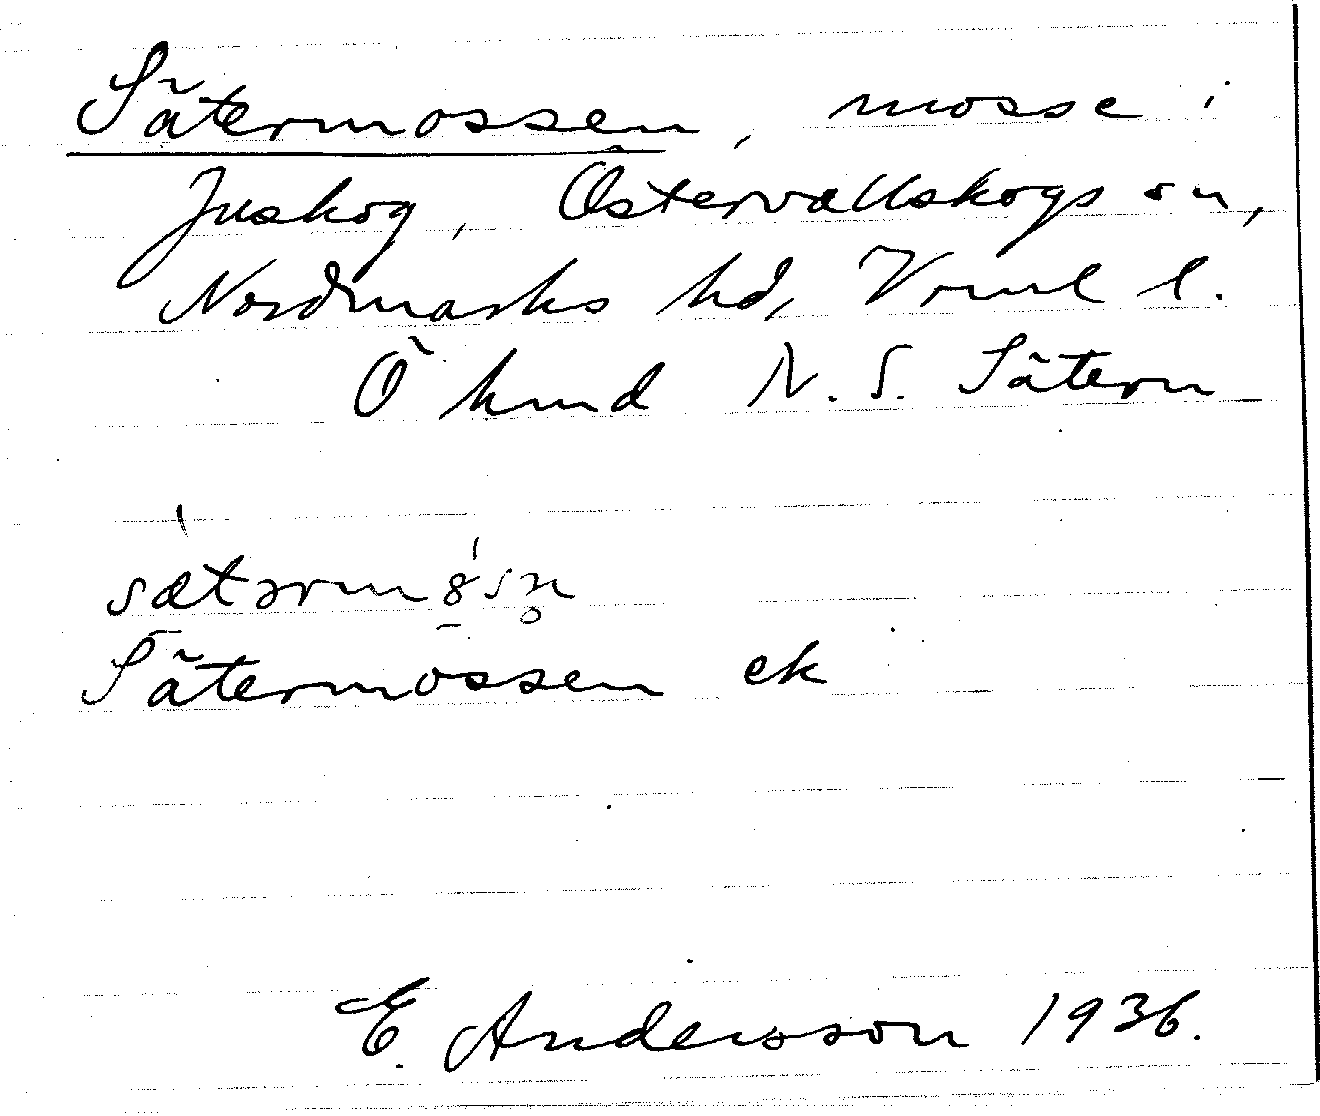 Sätermossen, mosse i
Juskog, Östervallskogs sn,
Nordmarks hd, Vrml l.
Ö kund N. S. Sätern
Sätermossen ek
E. Andersson 1936.